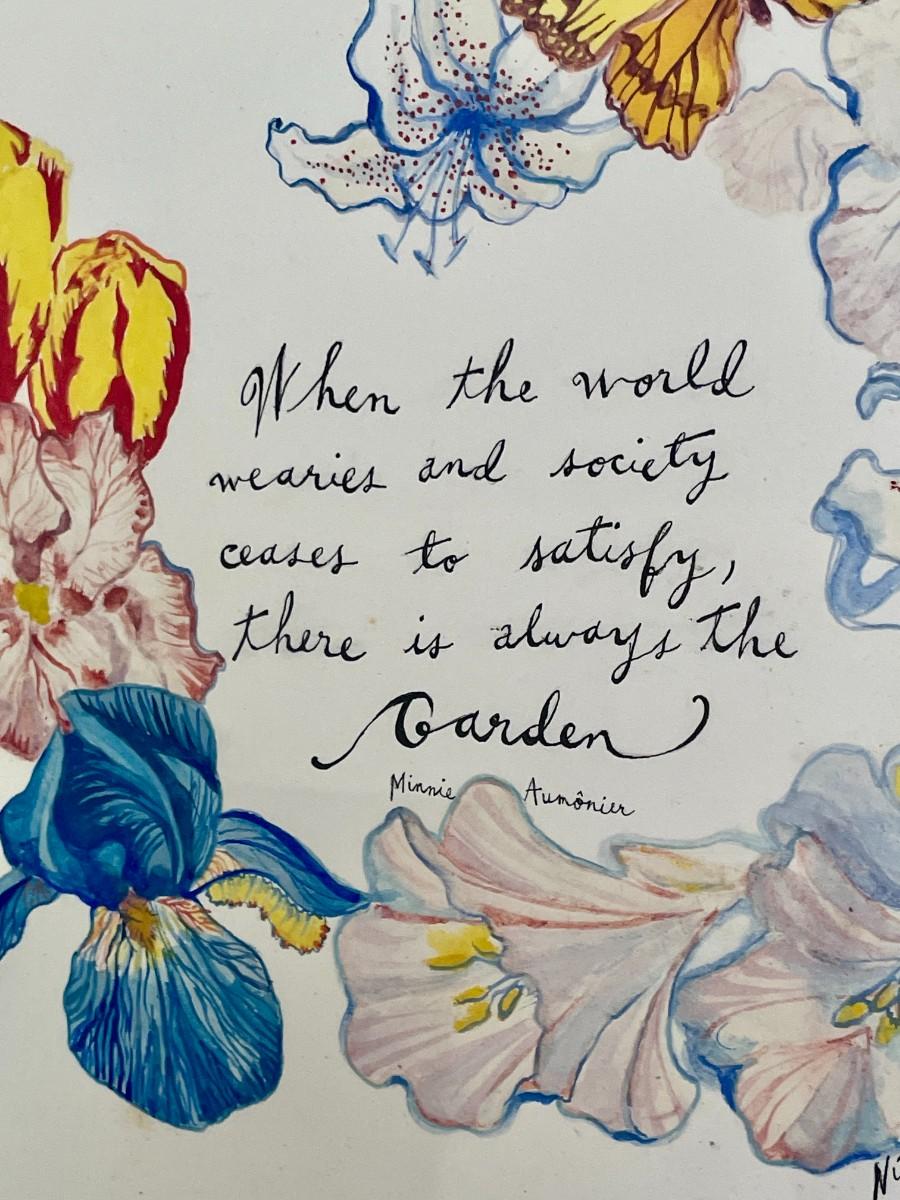 When the world
wearies and society
ceases to satisfy,
there is always the
Garden
Minnie Aumônier